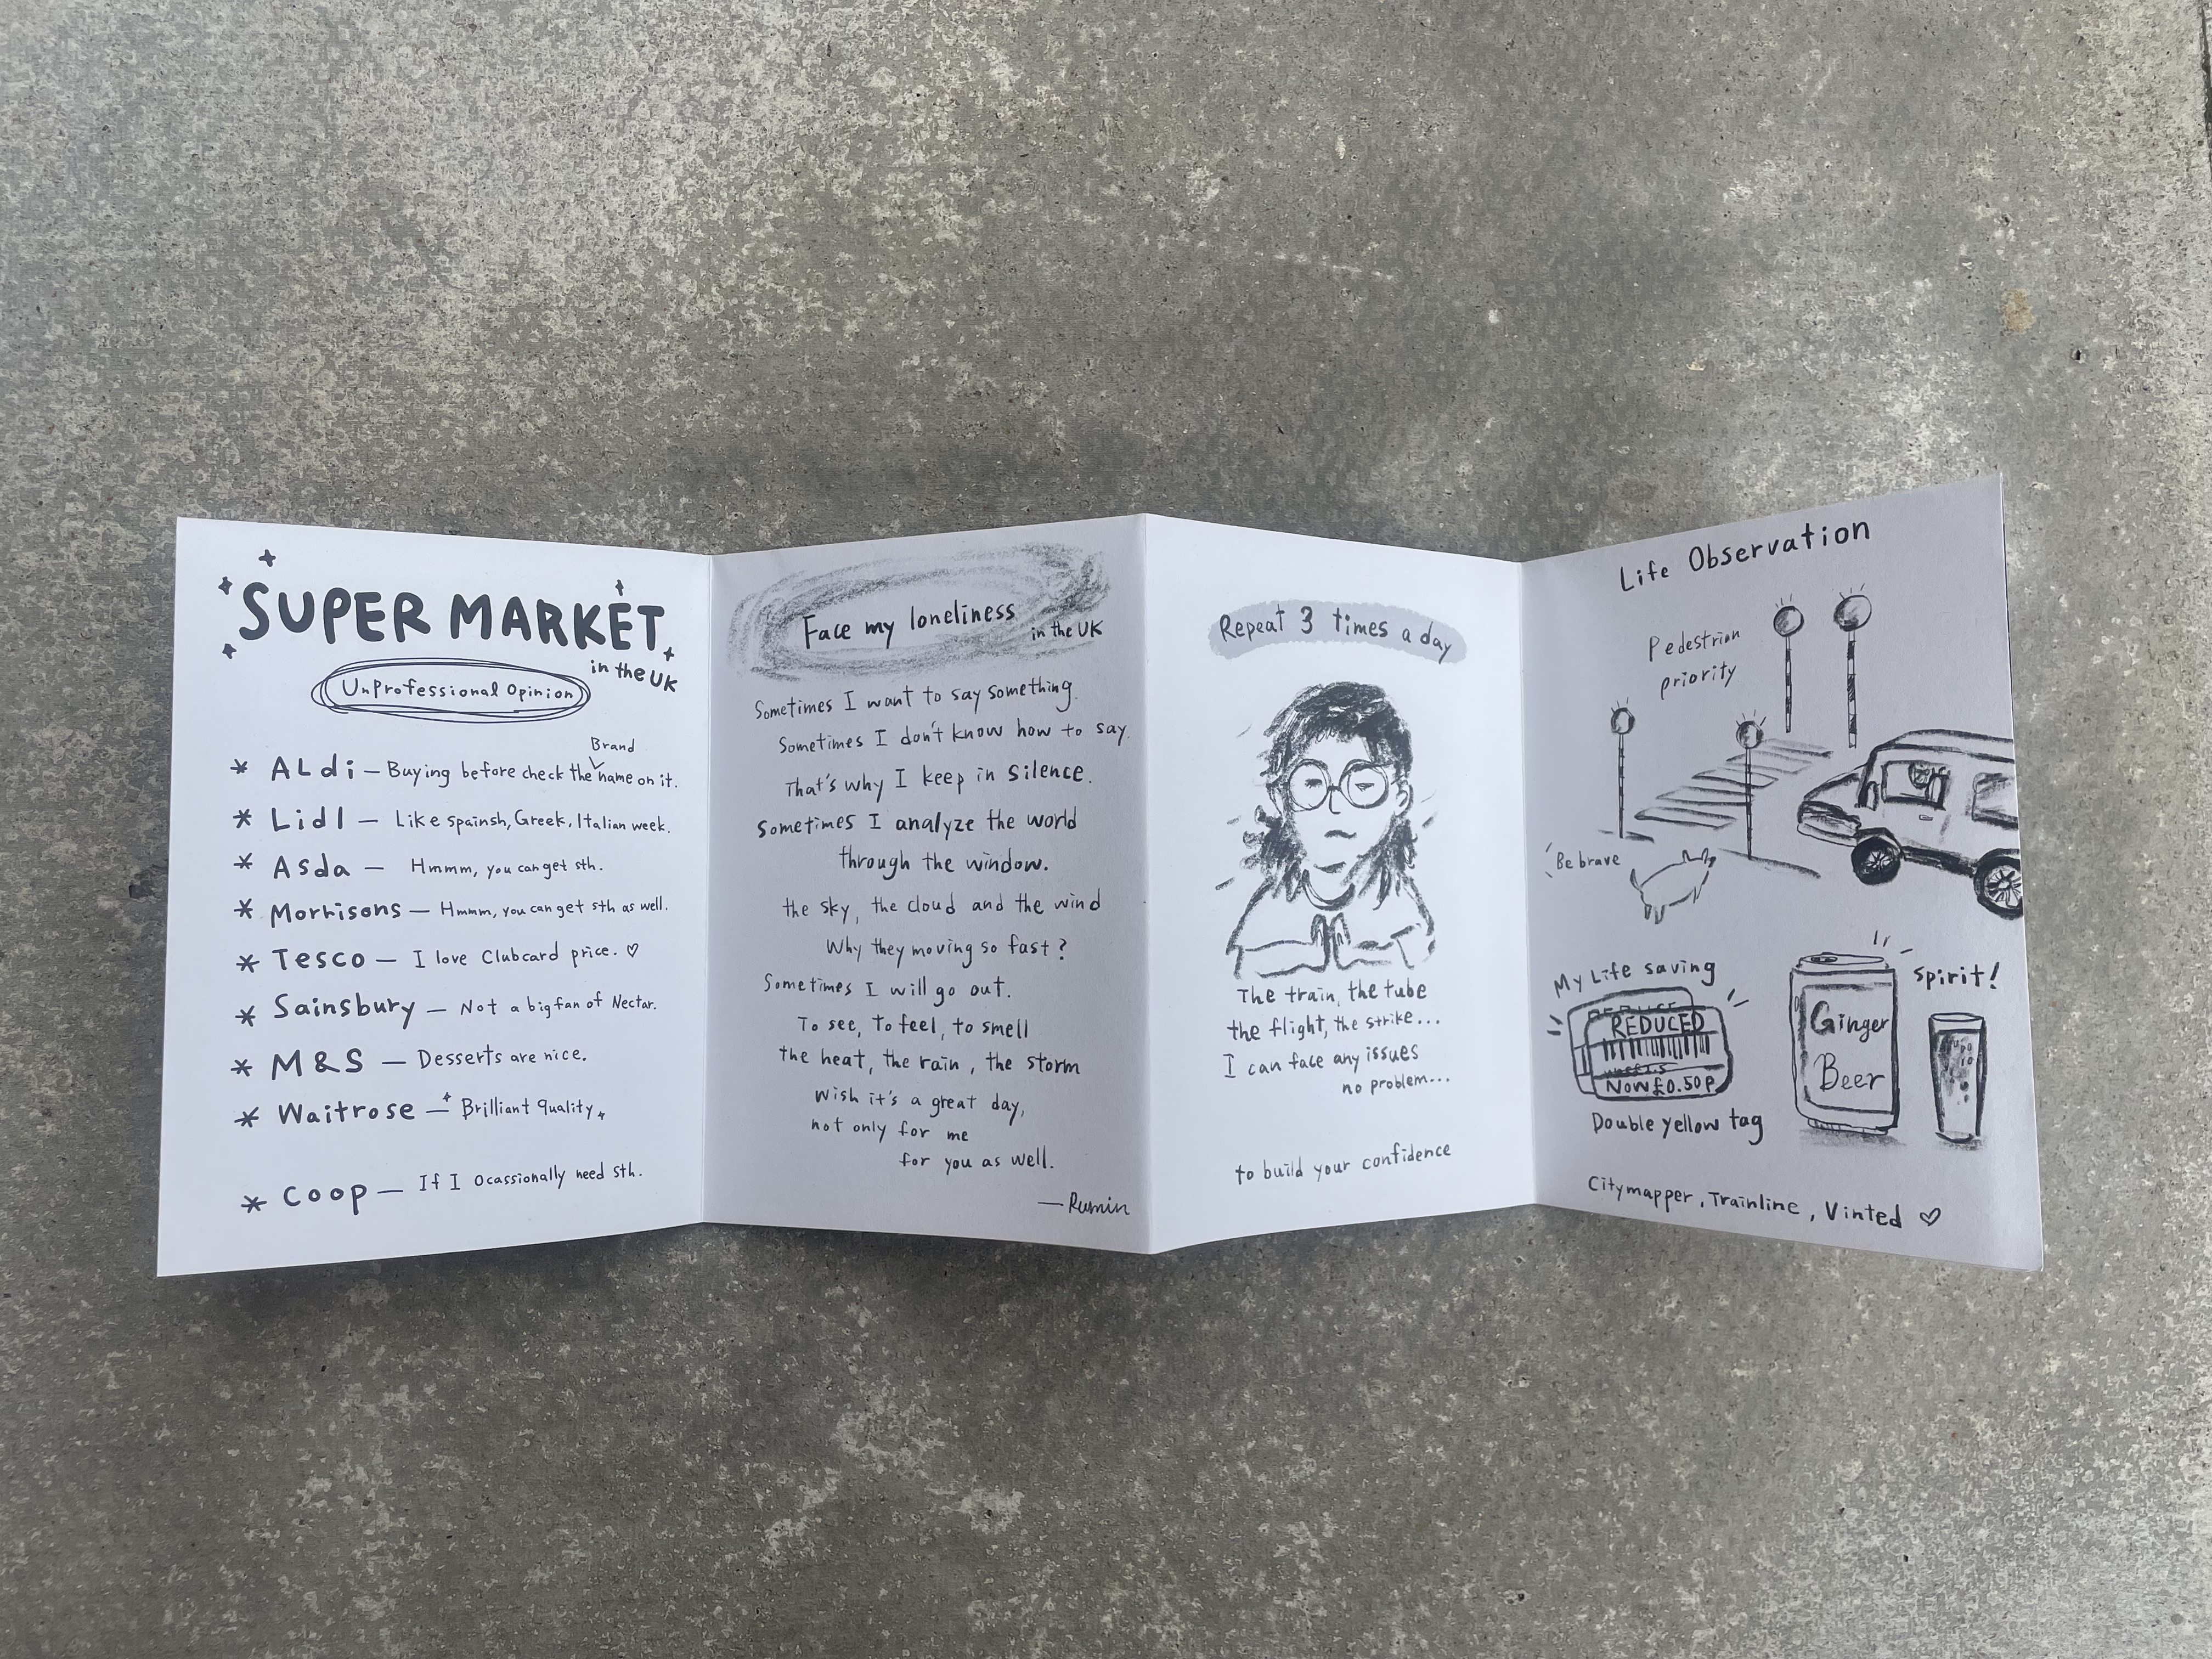 SUPER MARKET
in the UK
UnProfessional Opinion
Brand
* ALdi — Buying before check the name on it.
* Lidl — Like spainsh, Greek, Italian week.
* Asda — Hmmm, you can get sth.
* Morrisons — Hmmm, you can get sth as well.
* Tesco — I love Clubcard price. ♡
* Sainsbury — Not a big fan of Nectar.
* M&S — Desserts are nice.
* Waitrose — Brilliant quality
* Coop — If I Ocassionally need sth.
Face my loneliness
in the UK
Sometimes I want to say something.
Sometimes I don't know how to say.
That's why I keep in silence.
Sometimes I analyze the world
through the window.
the sky, the cloud and the wind
Why they moving so fast?
Sometimes I will go out.
To see, to feel, to smell
the heat, the rain, the storm
Wish it's a great day,
not only for me
for you as well.
— Rumin
Repeat 3 times a day
The train, the tube
the flight, the strike...
I can face any issues
no problem...
to build your confidence
Life Observation
Pedestrian
priority
Be brave
My Life saving
REDUCED
NOW £0.50P
Double yellow tag
Spirit!
Ginger
Beer
Citymapper, Trainline, Vinted ♡